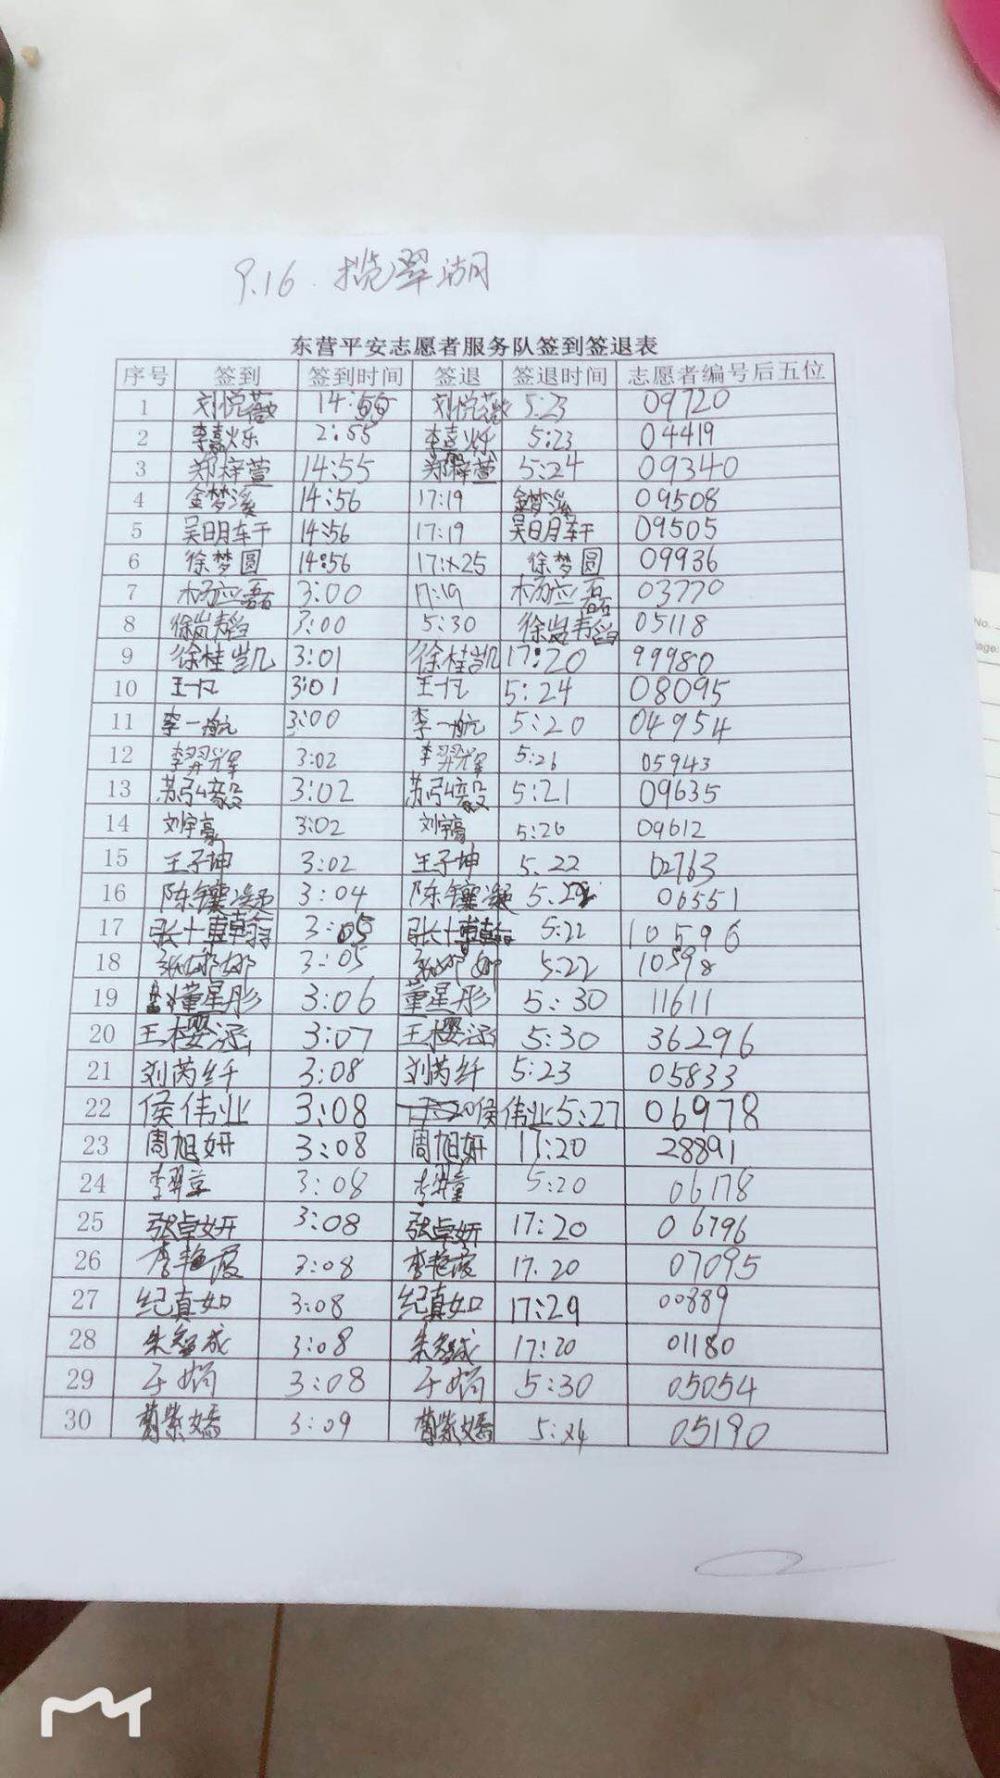 9.16. 揽翠湖
东营平安志愿者服务队签到签退表
序号 签到 签到时间 签退 签退时间 志愿者编号后五位
1 刘悦薇 14:55 刘悦薇 5:23 09720
2 李嘉烁 2:55 李嘉烁 5:23 04419
3 郑梓萱 14:55 郑梓萱 5:24 09340
4 金梦溪 14:56 17:19 金梦溪 09508
5 吴明轩 14:56 17:19 吴明轩 09505
6 徐梦圆 14:56 17:25 徐梦圆 09936
7 杨应磊 3:00 17:19 杨应磊 03770
8 徐岚韬 3:00 5:30 徐岚韬 05118
9 徐桂凯 3:01 徐桂凯 17:20 99980
10 王一凡 3:01 王一凡 5:24 08095
11 李一航 3:00 李一航 5:20 04954
12 李羿辉 3:02 李羿辉 5:26 05943
13 苏弘毅 3:02 苏弘毅 5:21 09635
14 刘宇豪 3:02 刘宇豪 5:20 09612
15 王子坤 3:02 王子坤 5.22 02763
16 陈镶凝 3:04 陈镶凝 5.22 06551
17 3:05 5:22 10596
18 张娜娜 3:05 张娜娜 5:22 10598
19 董星彤 3:06 董星彤 5:30 11611
20 王樱涵 3:07 王樱涵 5:30 36296
21 刘芮纤 3:08 刘芮纤 5:23 05833
22 侯伟业 3:08 侯伟业 5:27 06978
23 周旭妍 3:08 周旭妍 17:20 28891
24 3:08 5:20 06178
25 张卓妍 3:08 张卓妍 17:20 06796
26 李艳霞 3:08 李艳霞 17.20 07095
27 纪真如 3:08 纪真如 17:29 00889
28 朱智成 3:08 朱智成 17:20 01180
29 于娟 3:08 于娟 5:30 05054
30 3:09 05190